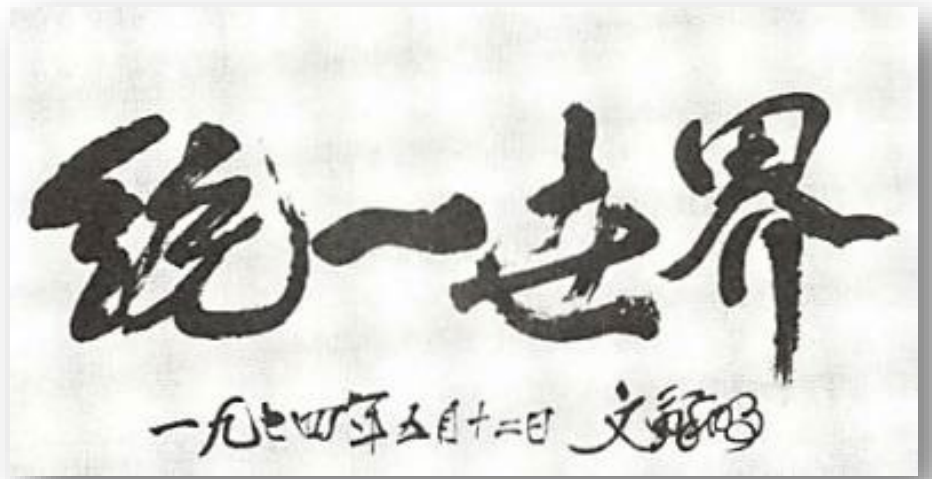 統一世界
一九七四年五月十二日 文鮮明